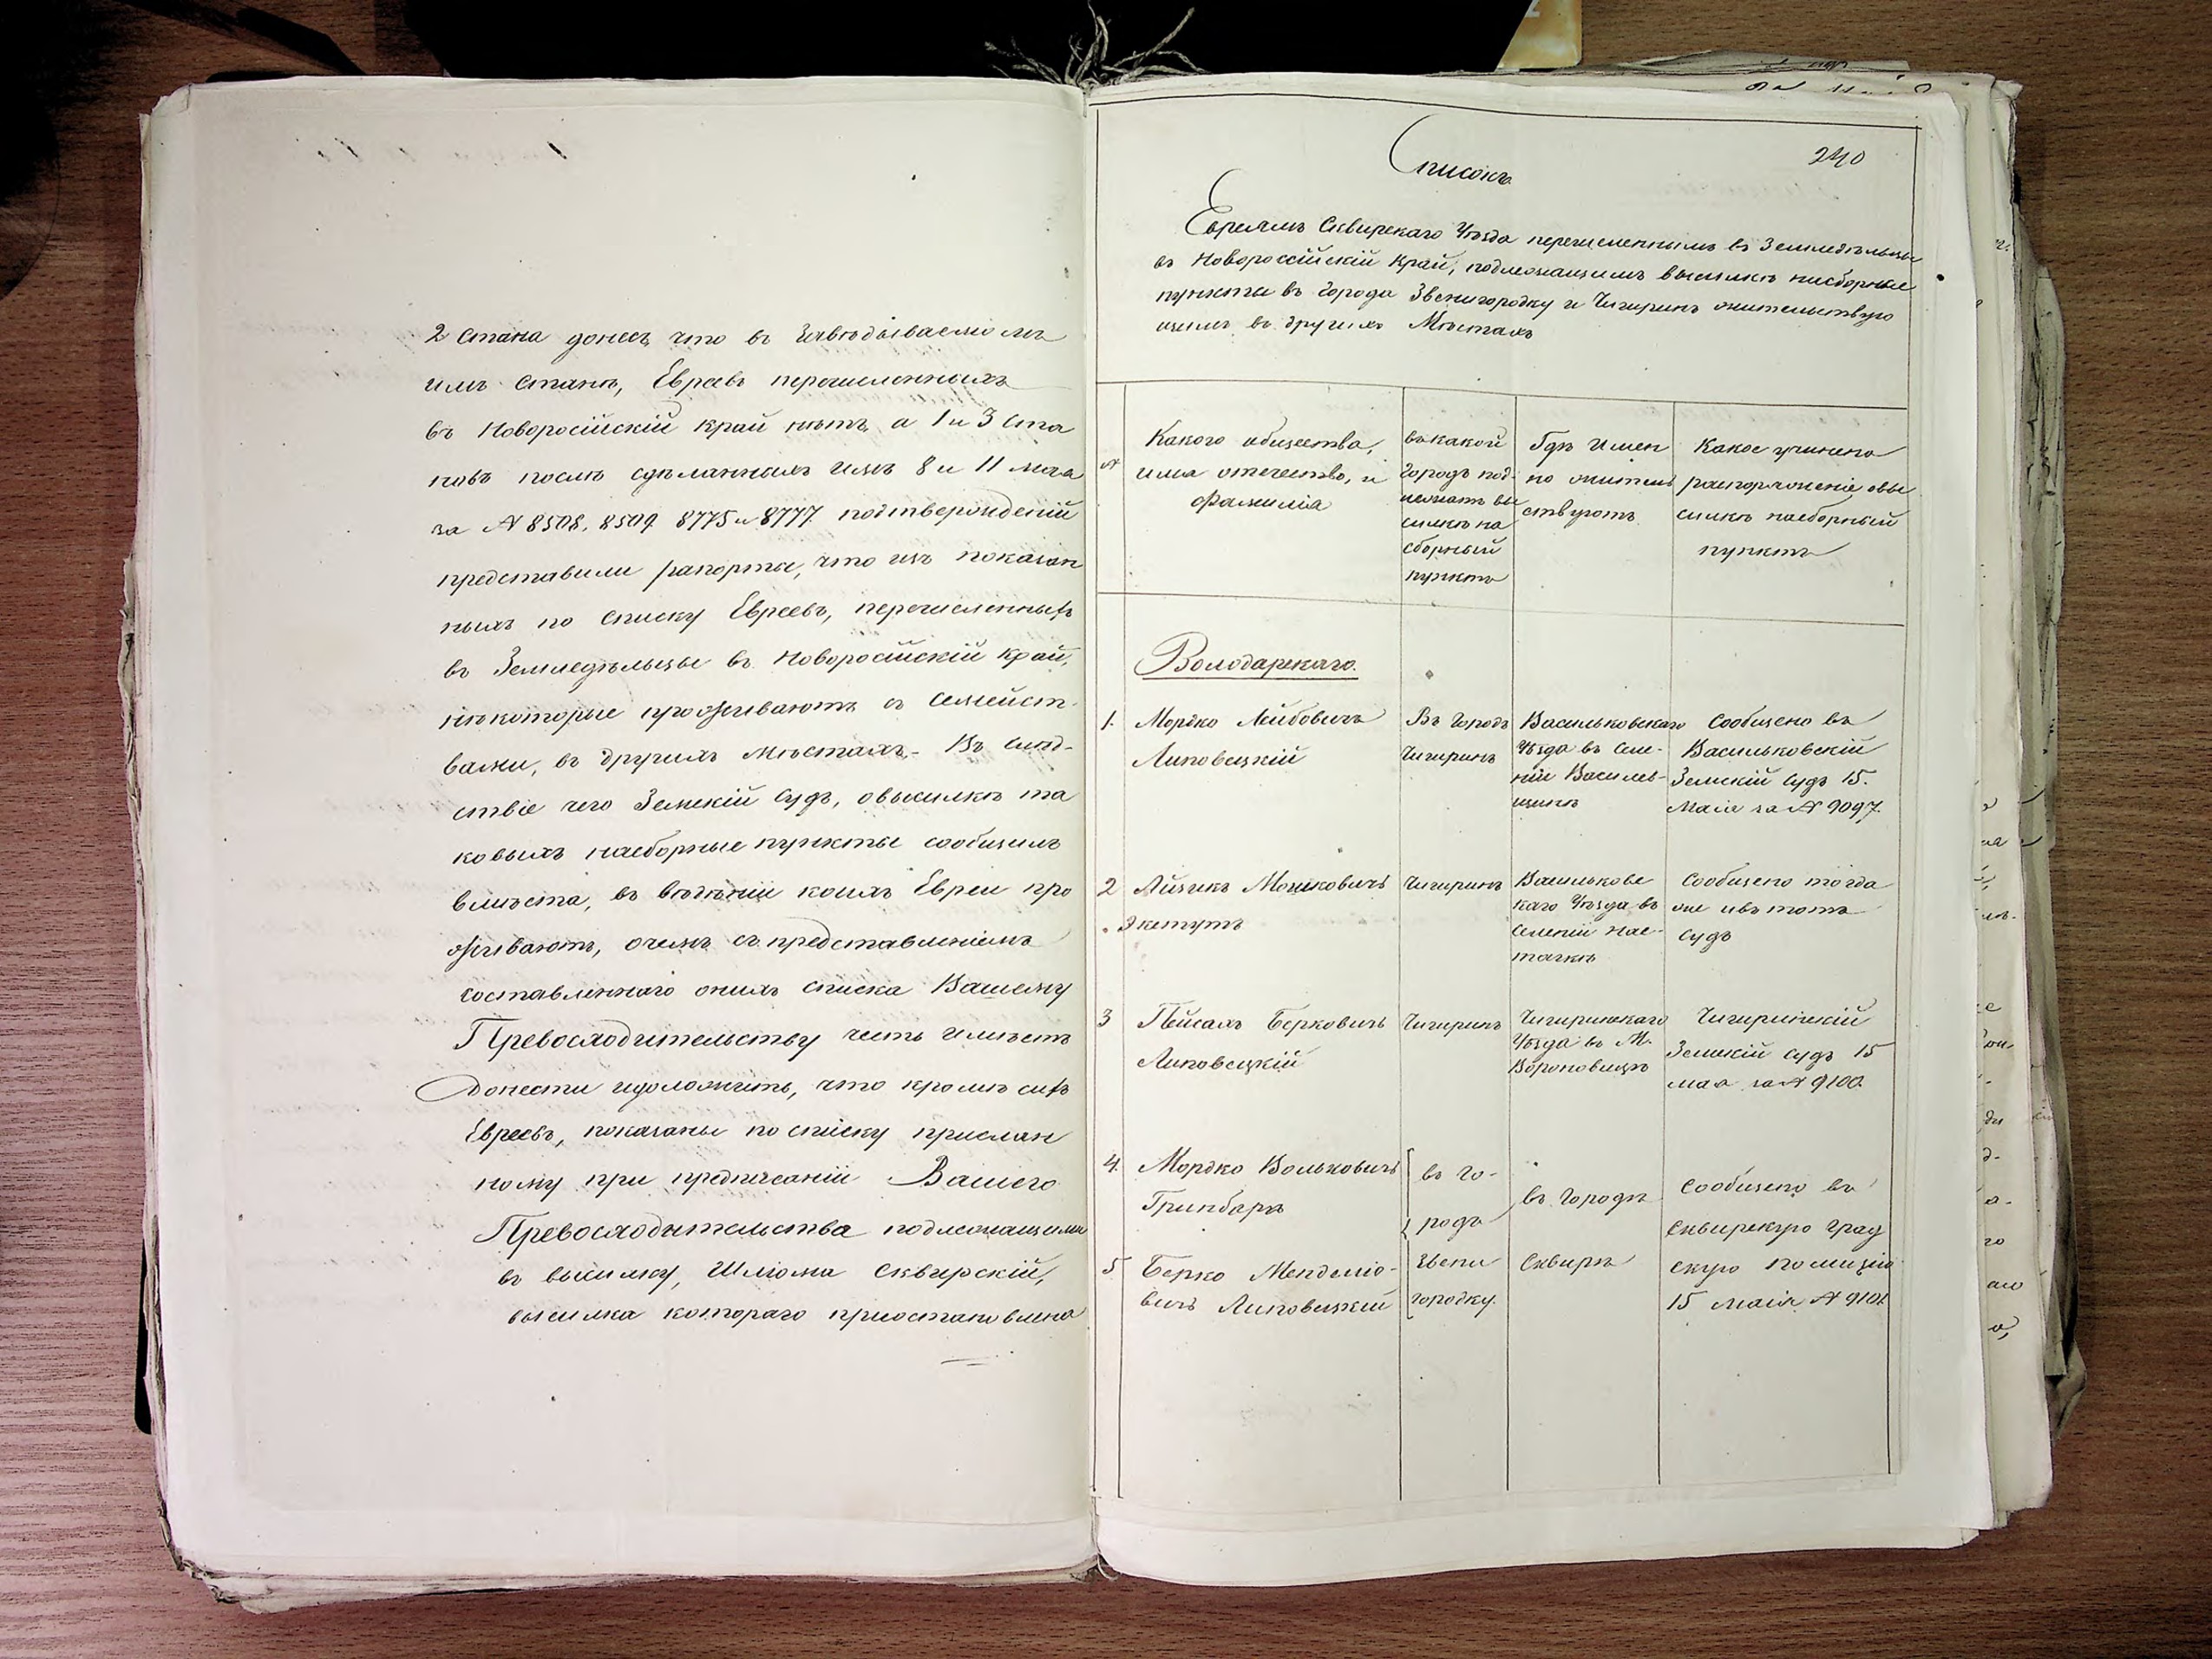 2 Стана донесъ что въ Завѣдываемомъ
имъ Станѣ, Евреевъ перечисленныхъ
въ Новоросійскій край нѣтъ, а 1 и 3 Ста
новъ послѣ сдѣланныхъ имъ 8 и 11 мая
за № 8508, 8509, 8775 и 8777 подтвержденій
представили рапорты, что изъ показан
ныхъ по списку Евреевъ, перечисленныхъ
въ Земледѣльцы въ Новоросійскій край,
нѣкоторые проживаютъ съ Семейст-
вами, въ другихъ мѣстахъ. Въ слѣд-
ствіе чего Земскій Судъ, овысылкѣ та
ковыхъ насборные пункты сообщилъ
вмѣста, въ вѣдѣніи коихъ Евреи про
живаютъ, очемъ съ представленіемъ
составленнаго онихъ списка Вашему
Превосходительству честь имѣетъ
донести идоложить, что кромѣ сихъ
Евреевъ, показаны по списку прислан
ному при предписаніи Вашего
Превосходительства подлежащими
въ высылку, Шліома Сквирскій,
высылка котораго приостановлена
240
Списокъ
Евреямъ Сквирскаго Уѣзда перечисленнымъ въ Земледѣльцы
въ Новороссійскій Край, подлежащимъ высылкѣ насборные
пункты въ города Звенигородку и Чигиринъ жительствую
щимъ въ другихъ Мѣстахъ
№
Какого общества,
имя отечество, и
Фамилія
въ какой
городъ под-
лежатъ вы
сылкѣ на
сборный
пунктъ
Гдѣ имен
но житель
ствуютъ
Какое учинено
распоряженіе овы
сылкѣ насборный
пунктъ
Володарскаго.
1. Мордко Лейбовичъ
Липовецкій
Въ городъ
Чигиринъ
Васильковскаго
Уѣзда въ селе-
ніи Василев-
щинѣ
Сообщено въ
Васильковскій
Земскій Судъ 15.
Маія за № 9097.
2 Айзикъ Мошковичъ
Экштутъ
Чигиринъ
Васильковс
каго Уѣзда въ
селеніи Нас-
ташкѣ
Сообщено тогда
же ивъ тотъ
Судъ
3 Пейсахъ Берковичъ
Липовецкій
Чигиринъ
Чигиринскаго
Уѣзда въ М.
Вороновицѣ
Чигиринскій
Земскій Судъ 15
мая за № 9100.
4. Мордко Вольковичъ
Гринбаръ
въ го-
родъ
въ городѣ
Сообщено въ
Сквирскую град
5 Берко Мендиліо-
вичъ Липовецкій
Звени
городку.
Сквирѣ
скую полицію
15 маія № 9101.